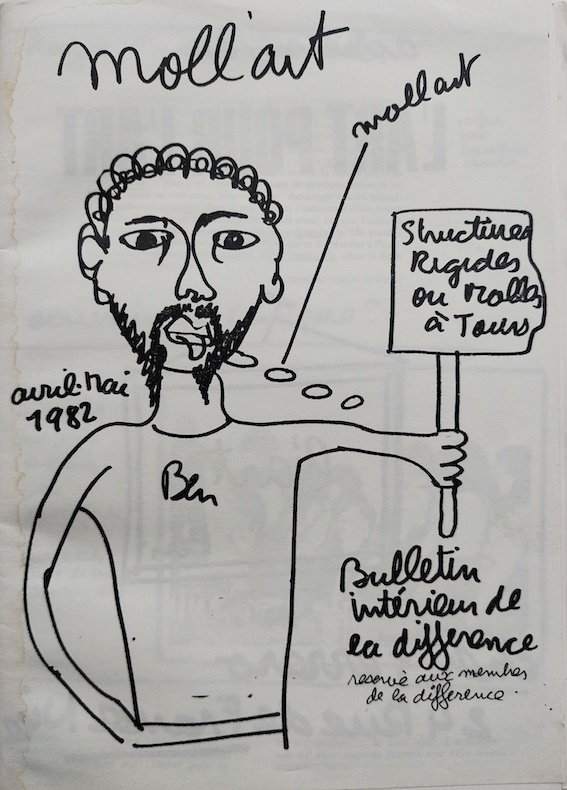 moll'art
mollart
Structures
Rigides
ou Molles
à Tours
avril-Mai
1982
Ben
Bulletin
intérieur de
la différence
reservé aux membres
de la différence.
L'ART POUR L'ART